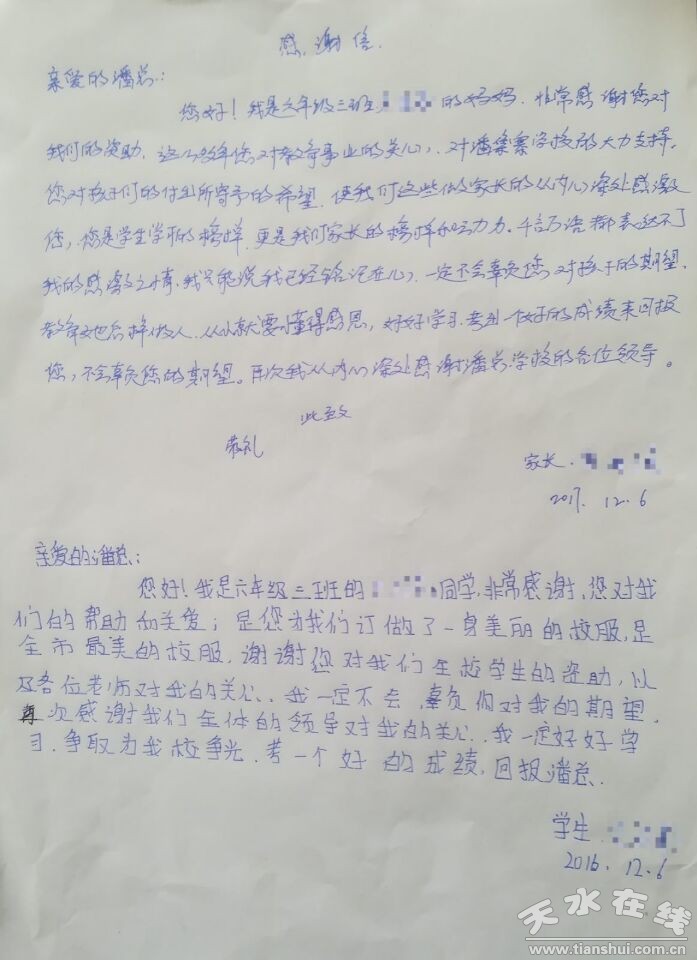 感谢信.
亲爱的潘总:
您好!我是六年级三班 的妈妈.非常感谢您对
我们的资助,这么多年您对教育事业的关心、对潘集寨学校的大力支持,
您对孩子们的付出所寄予的希望,使我们这些做家长的从内心深处感激
您,您是学生学习的榜样,更是我们家长的榜样和动力。千言万语都表达不了
我的感激之情,我只能说我已经铭记在心,一定不会辜负您对孩子的期望,
教育她怎样做人.从小就要懂得感恩,好好学习.考出一个好的成绩来回报
您,不会辜负您的期望。再次我从内心深处感谢潘总学校的各位领导。
此致
敬礼
家长.
2017.12.6
亲爱的潘总:
您好!我是六年级三班的 同学,非常感谢,您对我
们的帮助和关爱;是您为我们订做了一身美丽的校服,是
全市最美的校服,谢谢您对我们全校学生的资助,以
及各位老师对我的关心.我一定不会,辜负们对我的期望,
再次感谢我们全体的领导对我的关心.我一定好好学
习.争取为我校争光.考一个好的成绩,回报潘总.
学生.
2016.12.6
天水在线
www.tianshui.com.cn